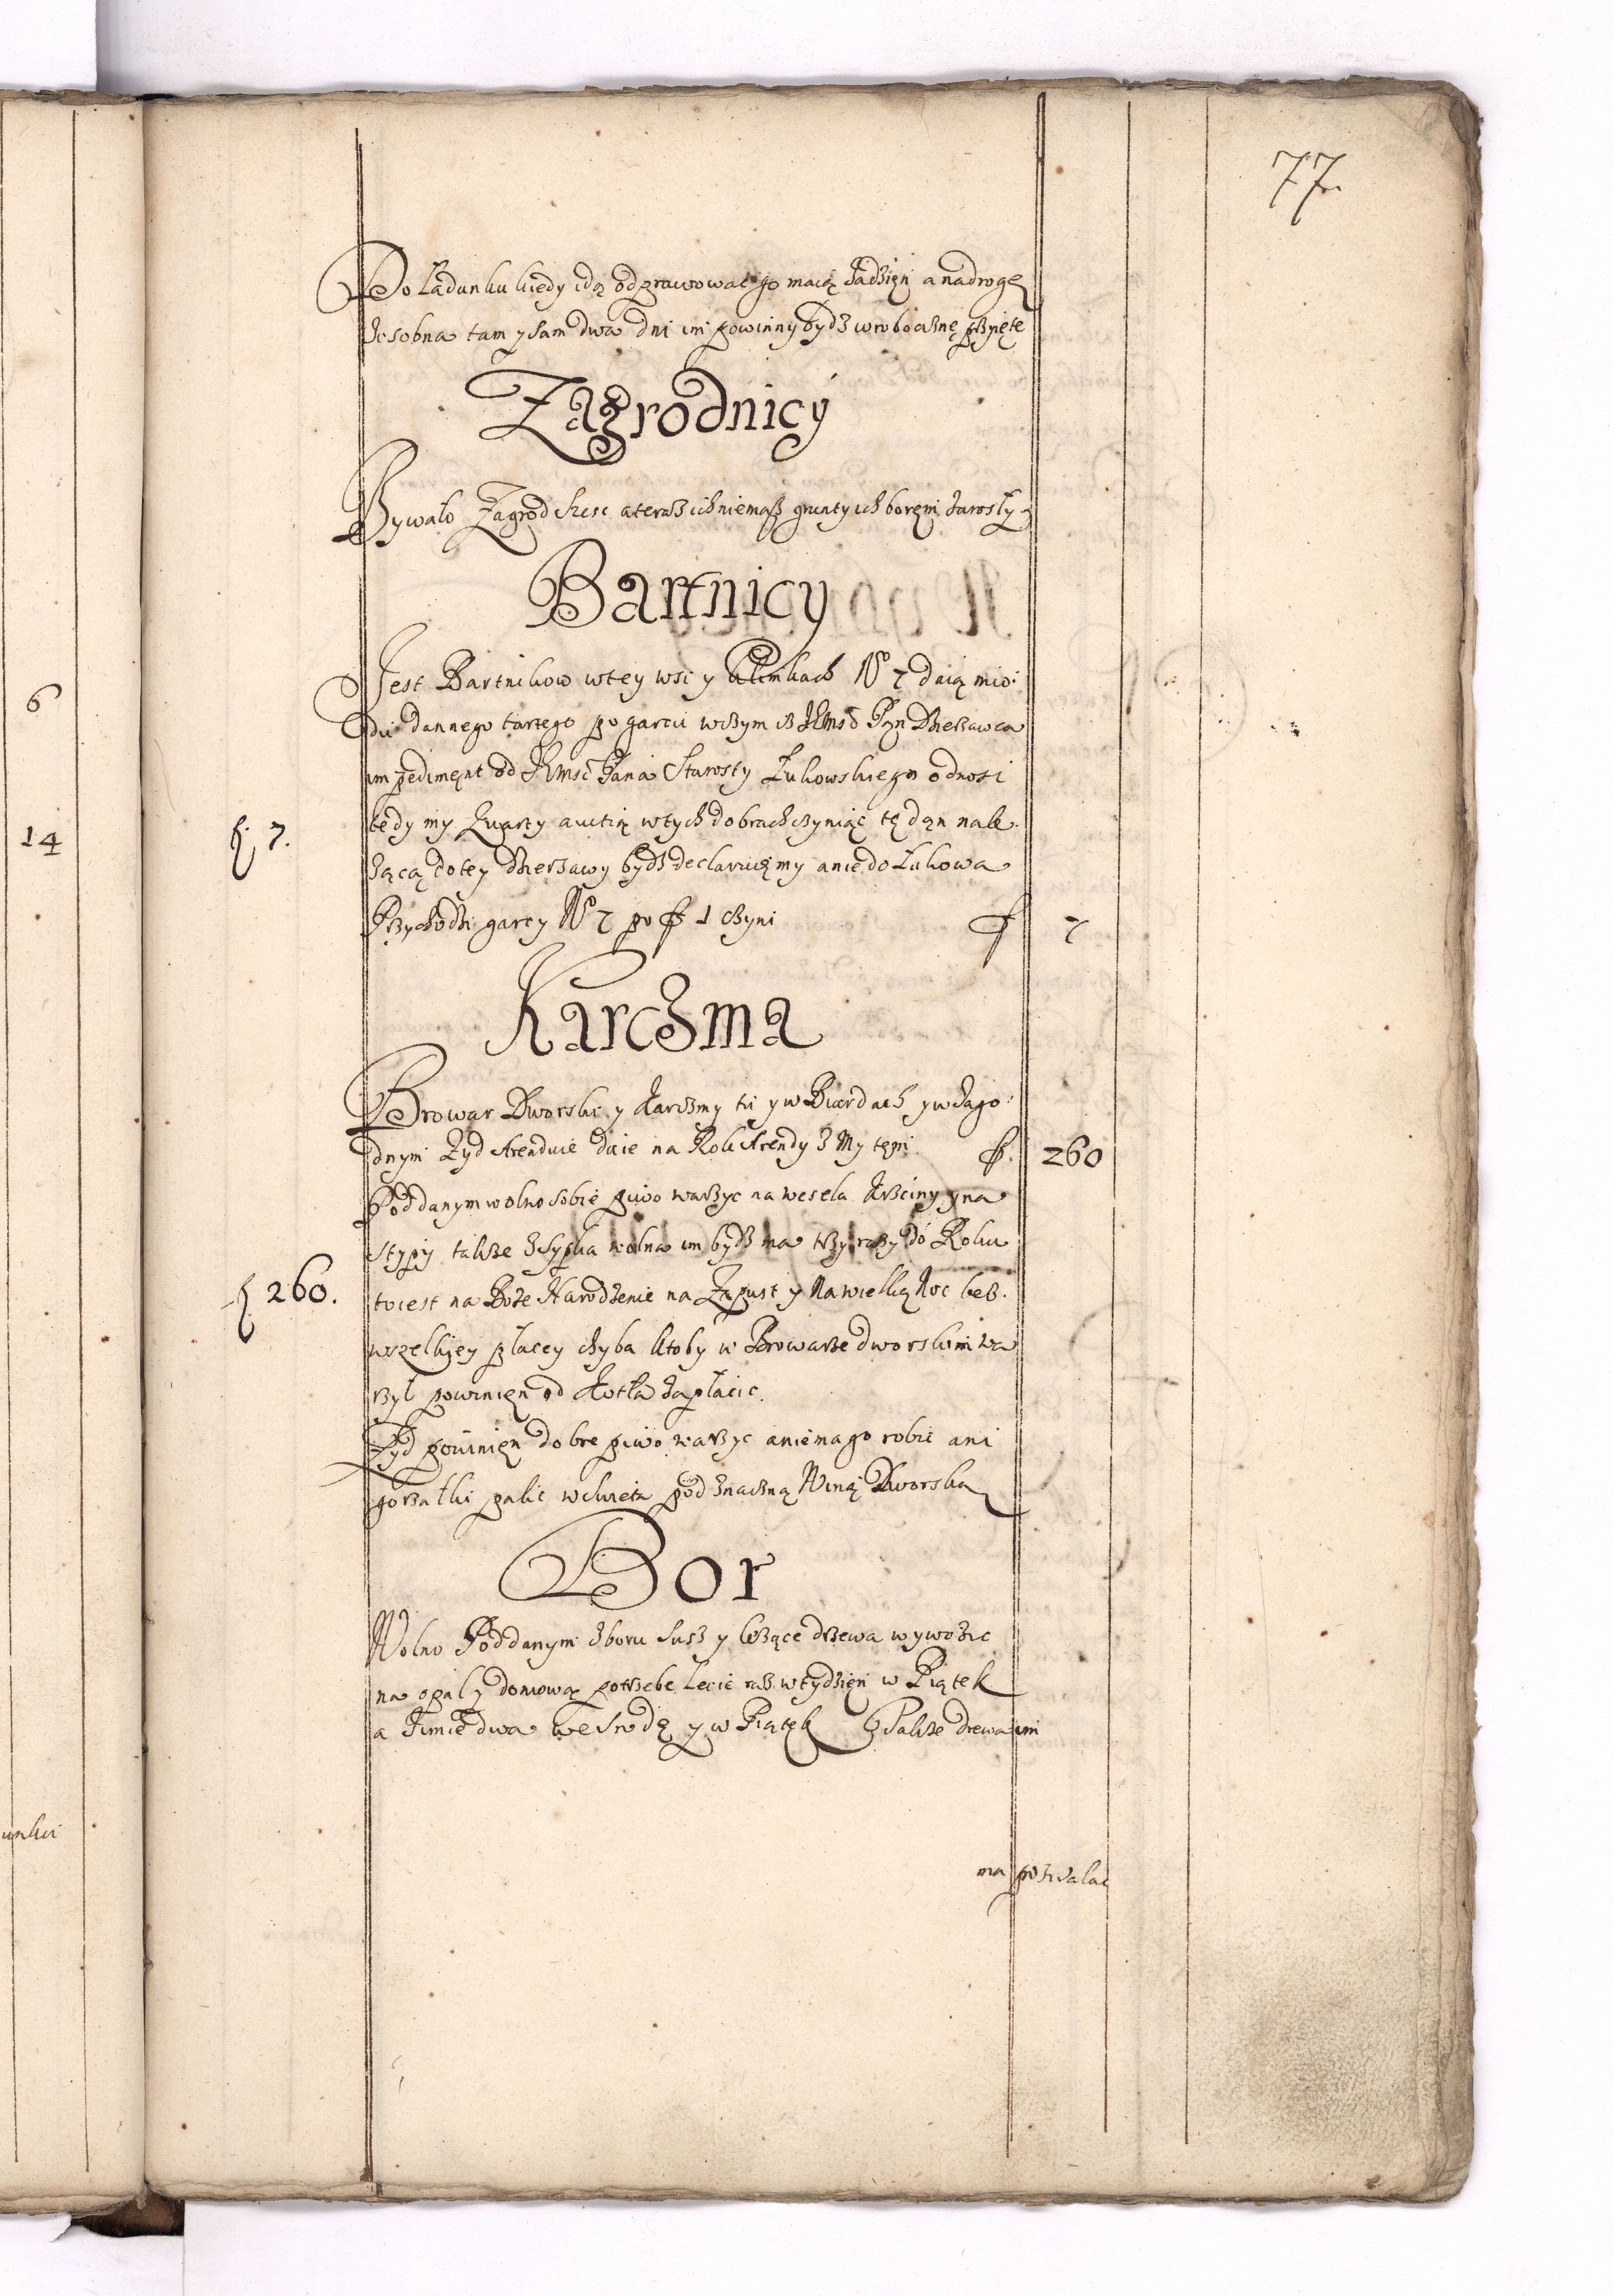 77
Do Ładunku kiedy idą odprawować go maią zadzięń a nadrogę
zosobna tam y sam dwa dni im powinny bydz wrobociznę przyięte
Zagrodnicy
Bywało Zagrod szesc a teraz ich niemasz grunty ich boręm zarosły
Bartnicy
Jest Bartnikow wtey wsi y Klimkach No 7 daią mio:
du dannego tartego po garcu wczym iz JEmsc Pąn Dzierzawca
impedimęnt od JEmsc Pana Starosty Łukowskiego odnosi
tedy my Kwarty auctią wtych dobrach czyniąc tę dąn nale:
żącą do tey Dzierzawy bydz declaruięmy anie do Łukowa
Przychodzi garcy No 7 po f 1 czyni f 7
f. 7.
Karczma
Browar Dworski y Karczmy tu y w Biardach y w Jago:
dnym Zyd Arenduie daie na Rok Arendy z Mytęm f. 260
Poddanym wolno sobie piwo warzyc na wesela krzciny y na
stypy takze zsypka wolna im bydz ma trzy razy do Roku
to iest na Boże Narodzenie na Zapust y Na wielką Noc bez
f 260.
wszelkiey płacey chyba ktoby w Browarze dworskim wa
rzył powinięn od Kotła zapłacic.
Zyd powinięn dobre piwo warzyc aniemago robic ani
gorzałki palic wswięta pod znaczną Winą Dworską
Bor
Wolno Poddanym zboru susz y leżące drzewa wywozic
na opał y domową potrzebe Lecie raz wtydzięń w Piątek
a Zimie dwa we srodę y w Piątęk Takze drewa im
ma pozwalac
6
14
unku